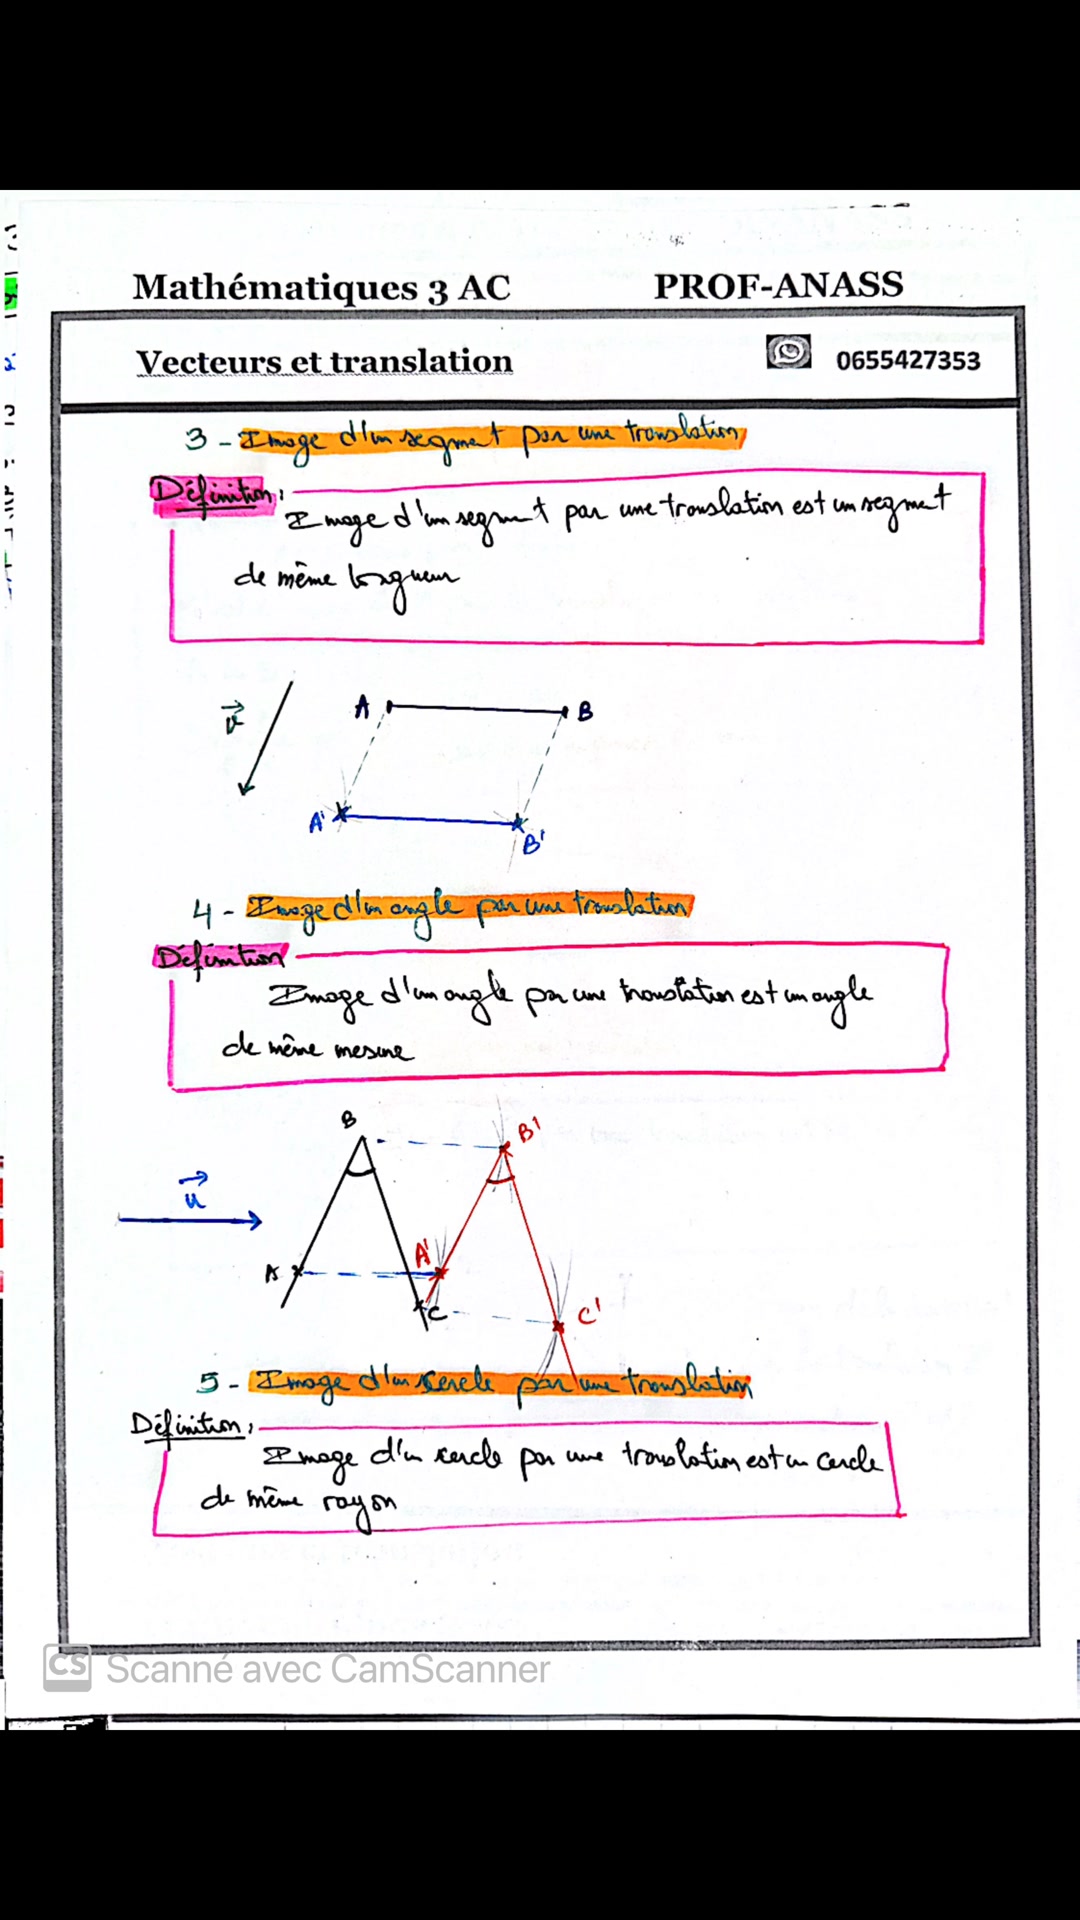 Mathématiques 3 AC PROF-ANASS
Vecteurs et translation 0655427353
3 - Image d'un segment par une translation
Définition:
Image d'un segment par une translation est un segment
de même longueur
v
A B
A' B'
4 - Image d'un angle par une translation
Définition
Image d'un angle par une translation est un angle
de même mesure
B B'
u
A A'
C C'
5 - Image d'un cercle par une translation
Définition:
Image d'un cercle par une translation est un cercle
de même rayon
CS Scanné avec CamScanner